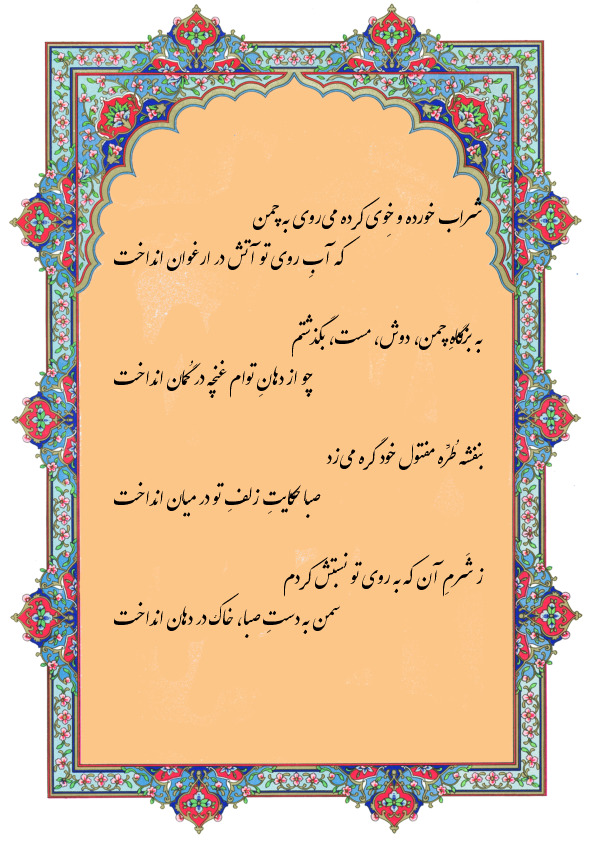 شراب خورده و خِوی کرده می‌روی به چمن
که آبِ روی تو آتش در ارغوان انداخت
به بزمگاهِ چمن، دوش، مست، بگذشتم
چو از دهانِ توام غنچه در گُمان انداخت
بنفشه طُرّه مفتول خود گره می‌زد
صبا حکایتِ زلفِ تو در میان انداخت
ز شَرمِ آن که به روی تو نسبتش کردم
سمن به دستِ صبا، خاک در دهان انداخت